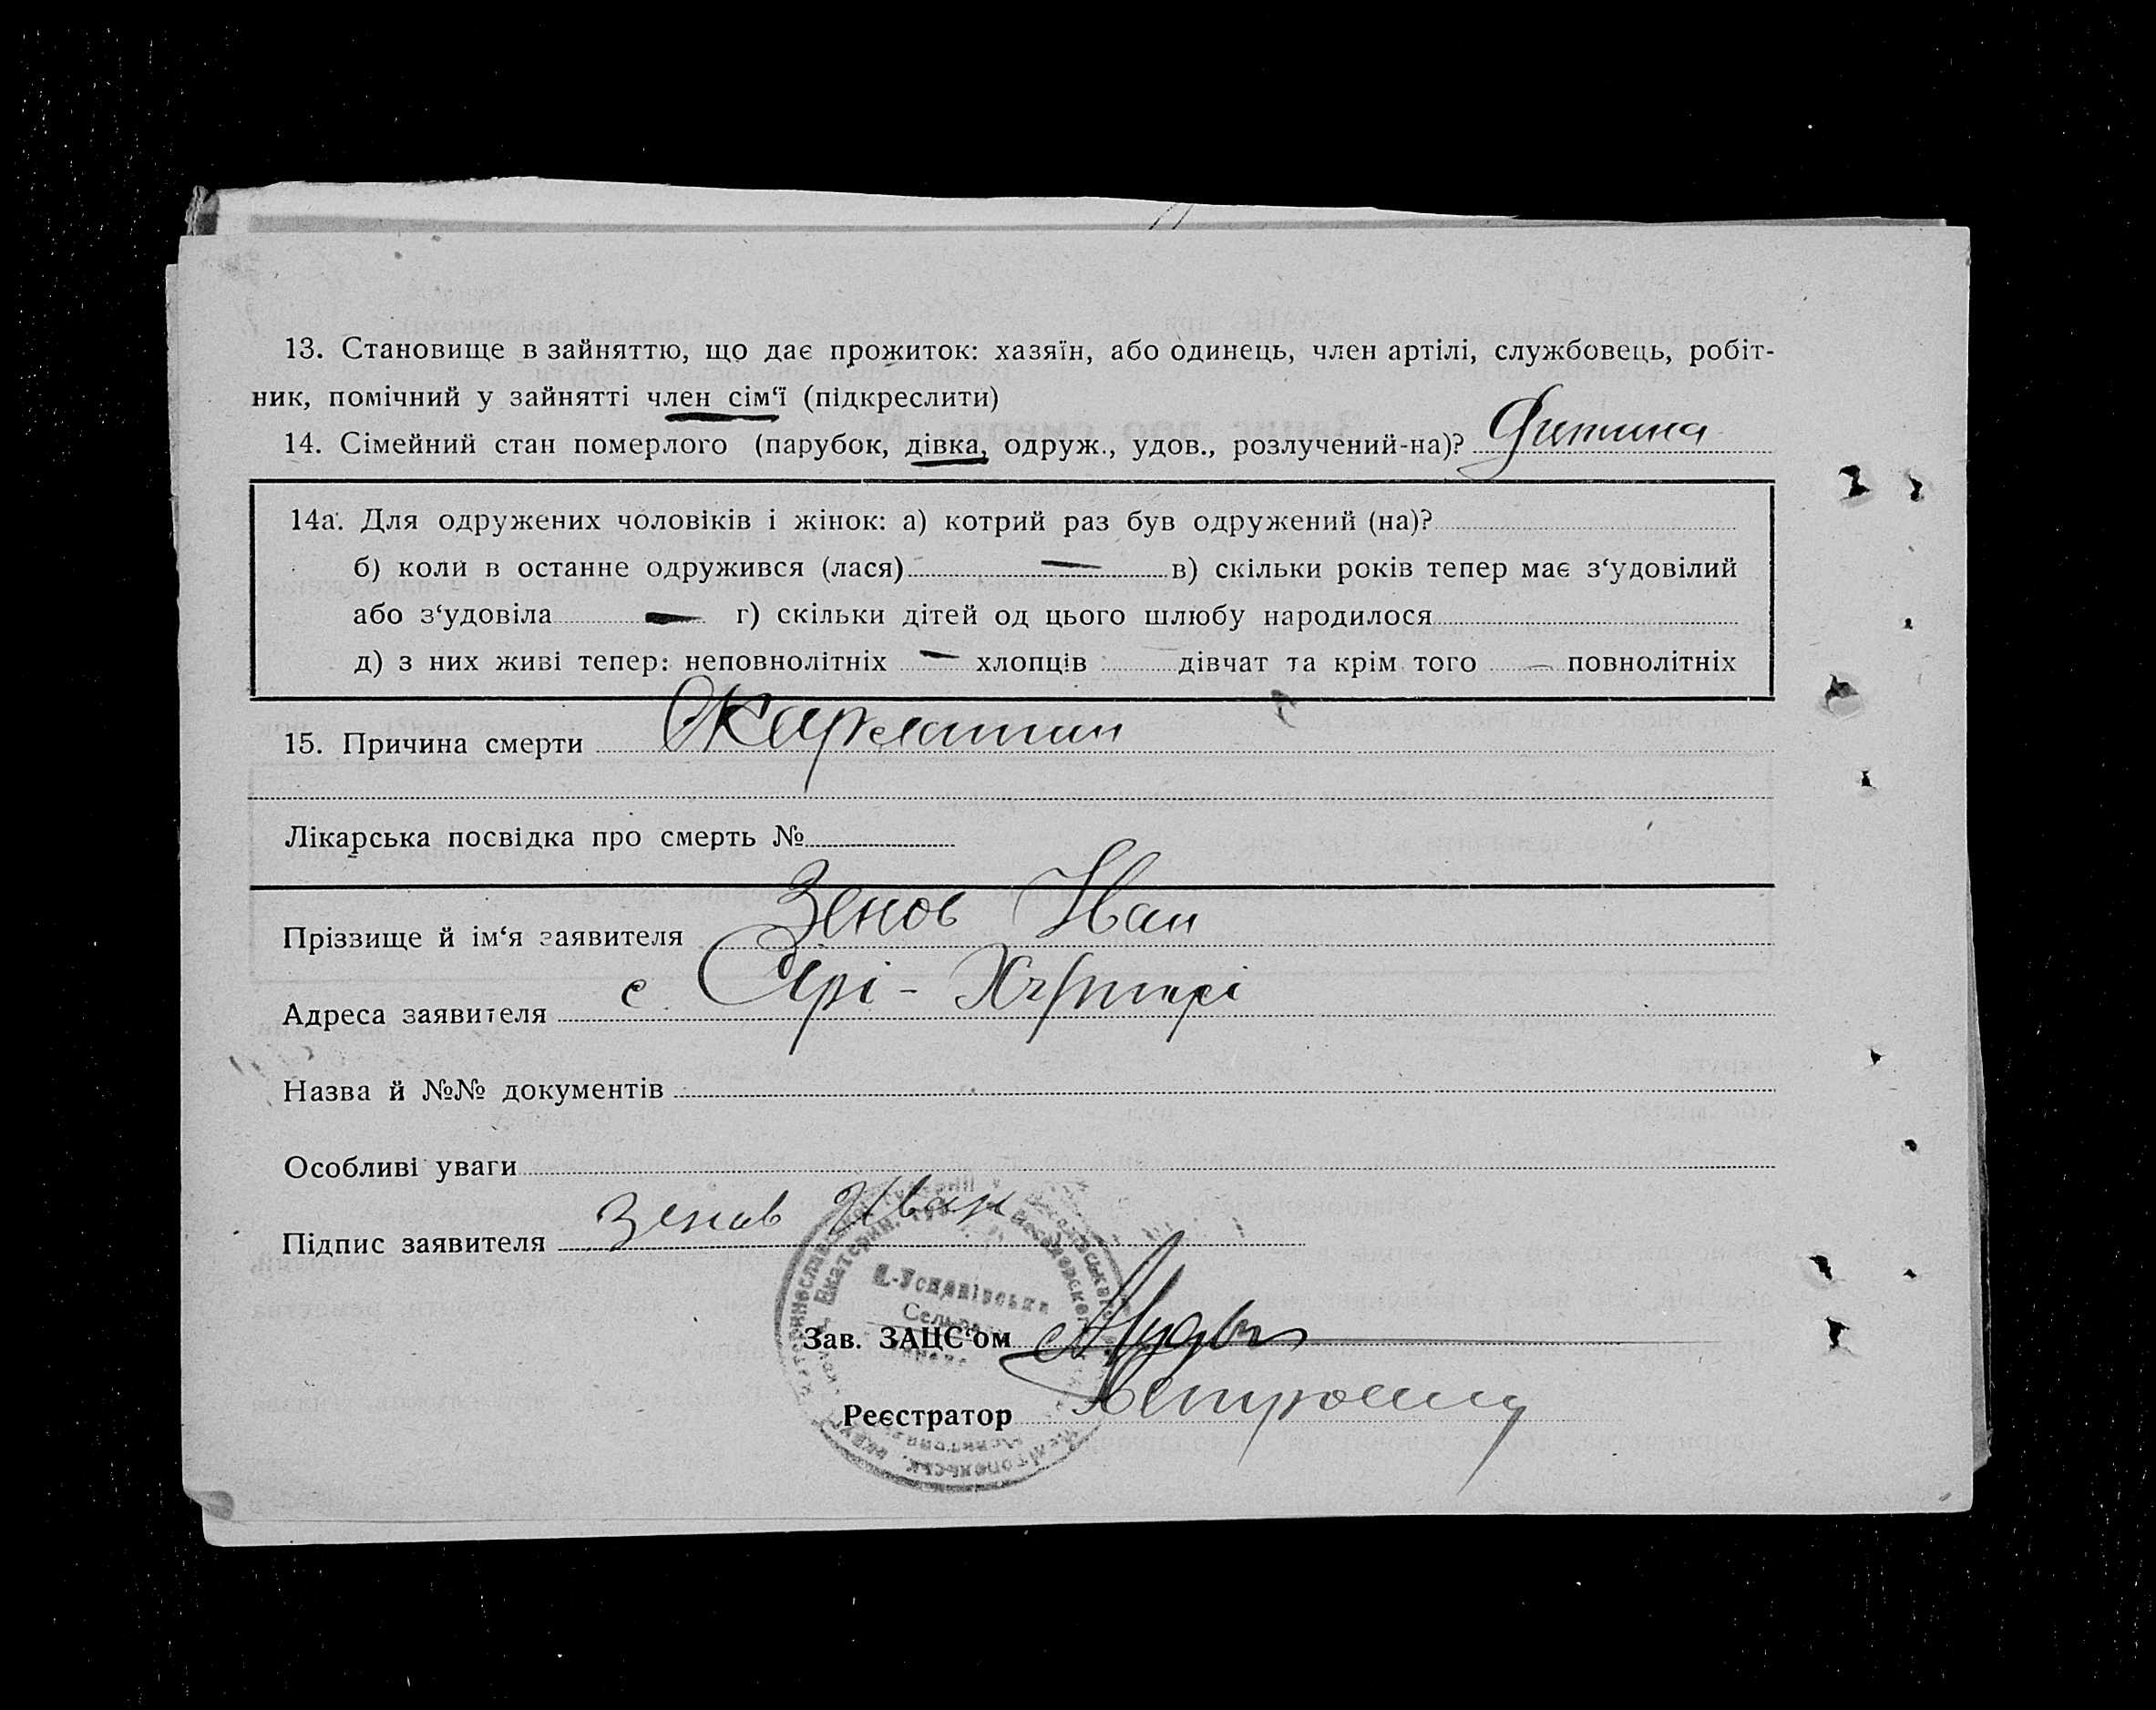 13. Становище в зайняттю, що дає прожиток: хазяїн, або одинець, член артілі, службовець, робіт-
ник, помічний у зайнятті член сім‘ї (підкреслити)
14. Сімейний стан померлого (парубок, дівка, одруж., удов., розлучений-на)? Дитина
14а. Для одружених чоловіків і жінок: а) котрий раз був одружений (на)?
б) коли в останне одружився (лася) — в) скільки років тепер має з‘удовілий
або з‘удовіла — г) скільки дітей од цього шлюбу народилося
д) з них живі тепер: неповнолітніх — хлопців дівчат та крім того — повнолітніх
15. Причина смерти Скарлатин
Лікарська посвідка про смерть №
Прізвище й ім‘я заявителя Зенов Иван
Адреса заявителя с. Сарі-
Назва й №№ документів
Особливі уваги
Підпис заявителя Зенов Иван
Зав. ЗАЦС‘ом
Реєстратор